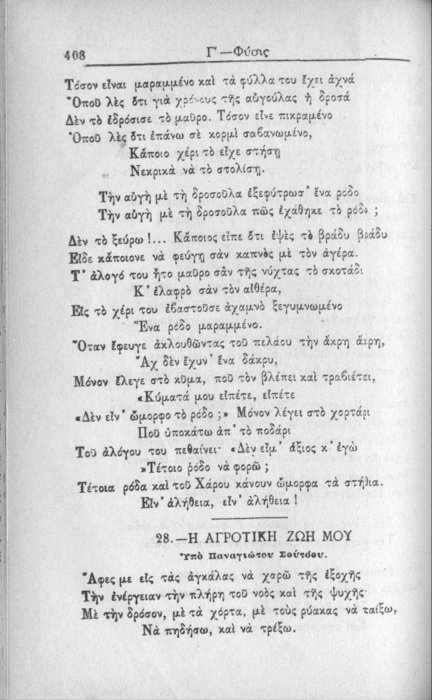 408
Γ' — Φύσις
Τόσον εἶναι μαραμμένο καὶ τὰ φύλλα του ἔχει ἀχνά
Ὁποῦ λὲς ὅτι γιὰ χρόνους τῆς αὐγούλας ἡ δροσά
Δὲν τὸ ἐδρόσισε τὸ μαῦρο. Τόσον εἶνε πικραμένο
Ὁποῦ λὲς ὅτι ἐπάνω σὲ κορμὶ σαβανωμένο,
Κᾶποιο χέρι τὸ εἶχε στήσῃ
Νεκρικὰ νὰ τὸ στολίσῃ.
Τὴν αὐγὴ μὲ τὴ δροσοῦλα ἐξεφύτρωσ' ἕνα ρόδο
Τὴν αὐγὴ μὲ τὴ δροσοῦλα πῶς ἐχάθηκε τὸ ρόδο ;
Δὲν τὸ ξεύρω !... Κᾶποιος εἶπε ὅτι ἐψὲς τὸ βράδυ βράδυ
Εἶδε κᾶποιονε νὰ φεύγῃ σὰν καπνὸς μὲ τὸν ἀγέρα.
Τ' ἄλογό του ἦτο μαῦρο σὰν τῆς νύχτας τὸ σκοτάδι
Κ' ἐλαφρὸ σὰν τὸν αἰθέρα,
Εἰς τὸ χέρι του ἐβαστοῦσε ἀχαμνὸ ξεγυμνωμένο
Ἕνα ρόδο μαραμμένο.
Ὅταν ἔφευγε ἀκλουθῶντας τοῦ πελάου τὴν ἄκρη ἄκρη,
Ἂχ δὲν ἔχυν' ἕνα δάκρυ,
Μόνον ἔλεγε στὸ κῦμα, ποῦ τὸν βλέπει καὶ τραβιέται,
«Κύματά μου εἰπέτε, εἰπέτε
«Δὲν εἶν' ὤμορφο τὸ ρόδο ;» Μόνον λέγει στὸ χορτάρι
Ποῦ ὑποκάτω ἀπ' τὸ ποδάρι
Τοῦ ἀλόγου του πεθαίνει· «Δὲν εἶμ' ἄξιος κ' ἐγὼ
»Τέτοιο ῥόδο νὰ φορῶ ;
Τέτοια ρόδα καὶ τοῦ Χάρου κάνουν ὤμορφα τὰ στήθια.
Εἶν' ἀλήθεια, εἶν' ἀλήθεια !
28.—Η ΑΓΡΟΤΙΚΗ ΖΩΗ ΜΟΥ
Ὑπὸ Παναγιώτου Σούτσου.
Ἄφες με εἰς τὰς ἀγκάλας νὰ χαρῶ τῆς ἐξοχῆς
Τὴν ἐνέργειαν τὴν πλήρη τοῦ νοὸς καὶ τῆς ψυχῆς·
Μὲ τὴν δρόσον, μὲ τὰ χόρτα, μὲ τοὺς ῥύακας νὰ παίξω,
Νὰ πηδήσω, καὶ νὰ τρέξω.